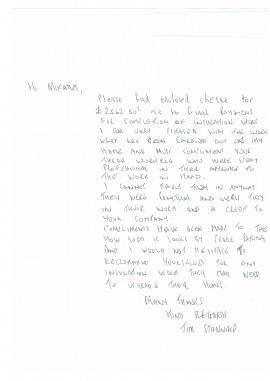 Hi Morana,
Please find enclosed cheque for
£2562.50 as to final payment
for completion of insulation work.
I am very pleased with the work
what has been carried out on my
home and must compliment your
these workers who were very
professional in there approach to
the work in hand.
I cannot fault them in anyway
they were punctual and very tidy
in their work and a credit to
your company.
Compliments have been made to
how good it looks by people passing
and I would not hesitate to
recommend yourselves for any
insulation work they may need
to upgrade their home.
Many thanks
Kind regards
Jim